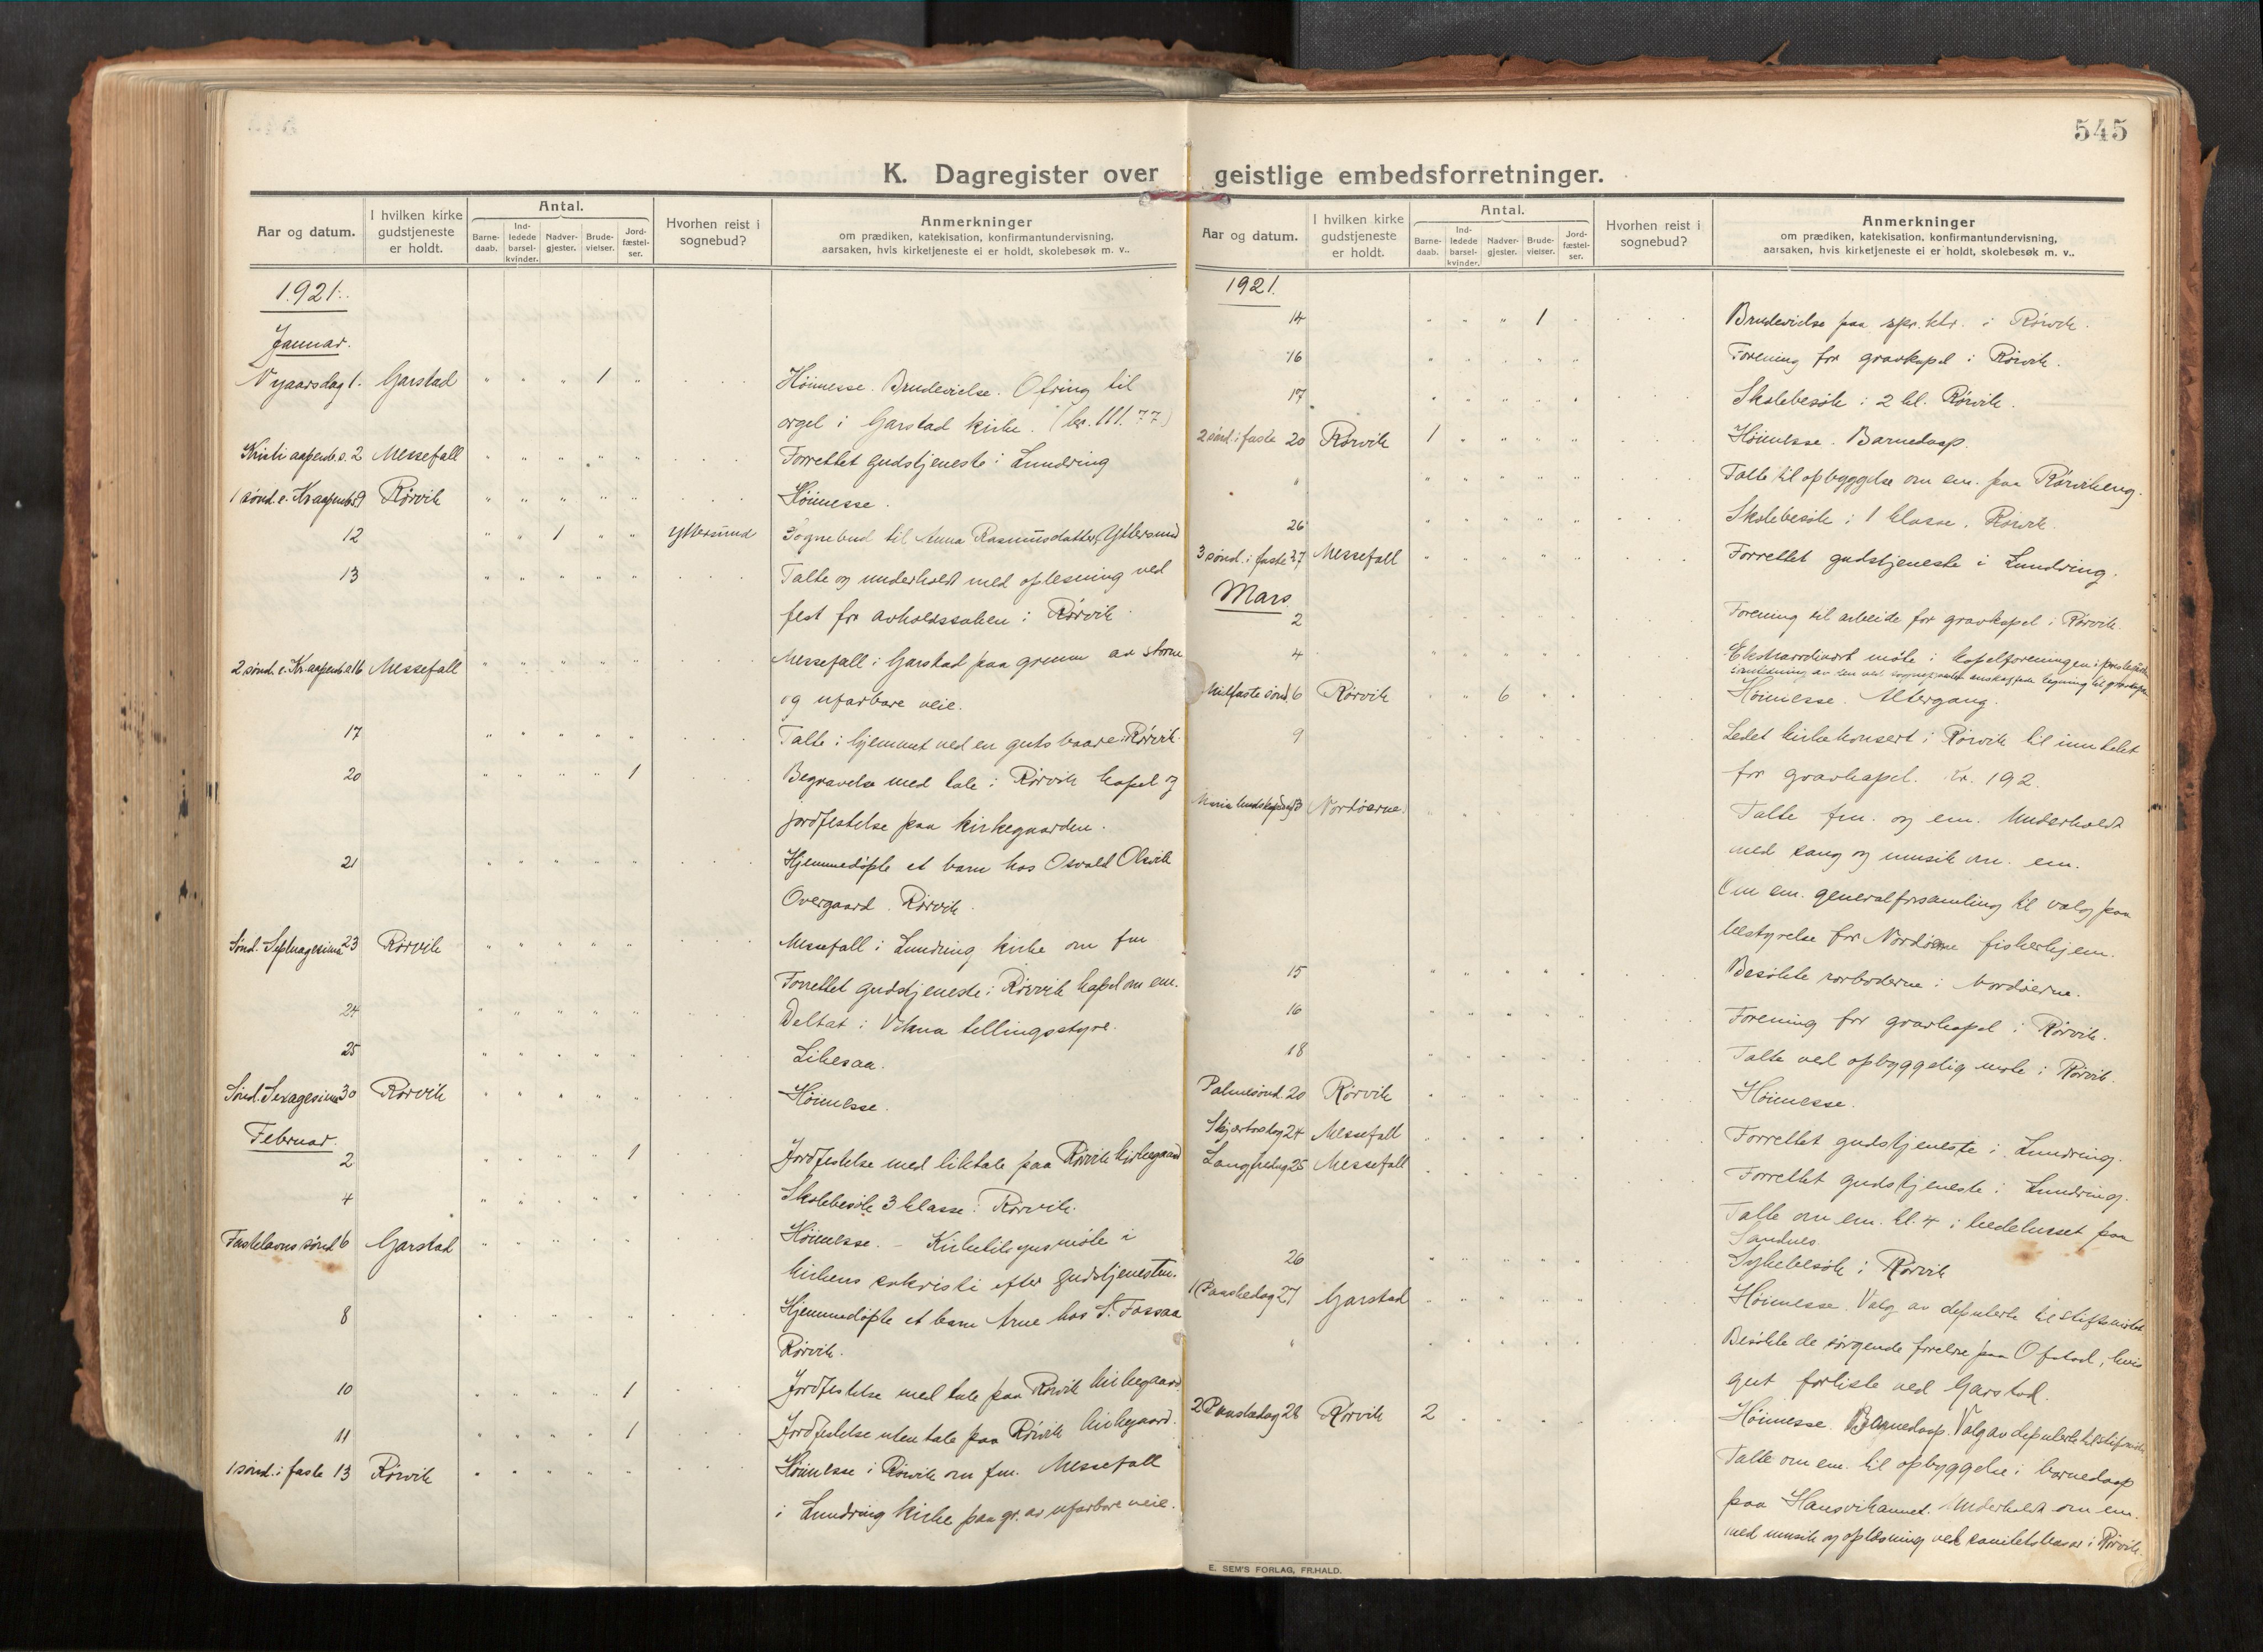 545
K. Dagregister over geistlige embedsforretninger.
Aar og datum. I hvilken kirke gudstjeneste er holdt. Antal. Barne-daab. Ind-ledede barsel-kvinder. Nadver-gjester. Brude-vielser. Jord-fæstel-ser. Hvorhen reist i sognebud? Anmerkninger
om prædiken, katekisation, konfirmantundervisning,
aarsaken, hvis kirketjeneste ei er holdt, skolebesøk m. v..
1921.
Januar.
Nyaarsdag 1. Garstad " " " 1 " Høimesse. Brudevielse. Ofring til
orgel i Garstad kirke. (kr. 111.77)
Kristi aapenb. s. 2 Messefall " " " " " Forrettet gudstjeneste i Lundring
1 sønd. e. Kr. aapenb. 9 Rørvik " " " " " Høimesse.
12 " " 1 " " Yttersund Sognebud til Anna Rasmusdatter, Yttersund
13 " " " " " Talte og underholdt med oplesning ved
fest for avholdssaken i Rørvik.
2 sønd. e. Kr. aapenb. 16 Messefall " " " " " Messefall i Garstad paa grunn av storm
og ufarbare veie.
17 " " " " " Talte i hjemmet ved en guts baare i Rørvik.
20 " " " " 1 Begravelse med tale i Rørvik kapel og
jordfestelse paa kirkegaarden.
21 " " " " " Hjemmedøpte et barn hos Osvald Olsvik
Overgaard. Rørvik.
Sønd. Septuagesima 23 Rørvik " " " " " Messefall i Lundring kirke om fm
Forrettet gudstjeneste i Rørvik kapel om em.
24 " " " " " Deltat i Vikna tellingsstyre.
25 " " " " " Likesaa.
Sønd. Sexagesima 30 Rørvik " " " " " Høimesse.
Februar.
2 " " " " 1 Jordfestelse med liktale paa Rørvik kirkegaard
4 " " " " " Skolebesøk 3 klasse. Rørvik.
Fastelavns sønd 6 Garstad " " " " " Høimesse. – Kirketilsynsmøte i
kirkens sakristi efter gudstjenesten.
8 " " " " " Hjemmedøpte et barn Arne hos S. Fossaa
Rørvik.
10 " " " " 1 Jordfestelse med tale paa Rørvik kirkegaard.
11 " " " " 1 Jordfestelse uten tale paa Rørvik kirkegaard.
1 sønd. i faste 13 Rørvik " " " " " Høimesse i Rørvik om fm. Messefall
i Lundring kirke paa gr. av ufarbare veie.
Aar og datum. I hvilken kirke gudstjeneste er holdt. Antal. Barne-daab. Ind-ledede barsel-kvinder. Nadver-gjester. Brude-vielser. Jord-fæstel-ser. Hvorhen reist i sognebud? Anmerkninger
om prædiken, katekisation, konfirmantundervisning,
aarsaken, hvis kirketjeneste ei er holdt, skolebesøk m. v..
1921.
14 " " " 1 " Brudevielse paa spr. ktr. i Rørvik.
16 " " " " " Forening for gravkapel i Rørvik.
17 " " " " " Skolebesøk i 2 kl. Rørvik.
2 sønd. i faste 20 Rørvik 1 " " " " Høimesse. Barnedaap.
" " " " " " Talte til opbyggelse om em. paa Rørvikeng.
26 " " " " " Skolebesøk i 1 klasse. Rørvik
3 sønd. i faste 27 Messefall " " " " " Forrettet gudstjeneste i Lundring.
Mars
2 " " " " " Forening til arbeide for gravkapel i Rørvik.
4 " " " " " Ekstraordinært møte i kapelforeningen i
Midfaste sønd 6 Rørvik " " 6 " " Høimesse. Altergang.
9 " " " " " Ledet kirkekonsert i Rørvik til inntekt
for gravkapel. Kr. 192.
Maria 13 Nordøerne. " " " " " Talte fm. og em. Underholdt
med sang og musik om em.
Om em. generalforsamling til valg paa
bestyrelse for Nordøerne fiskerhjem.
15 " " " " " Besøkte rorboderne i Nordøerne.
16 " " " " " Forening for gravkapel i Rørvik.
18 " " " " " Talte ved opbyggelig møte i Rørvik.
Palmesønd. 20 Rørvik " " " " " Høimesse.
Skjærtorsdag 24 Messefall " " " " " Forrettet gudstjeneste i Lundring.
Langfredag 25 Messefall " " " " " Forrettet gudstjeneste i Lundring.
Talte om em. kl. 4 i bedehuset paa
Sandnes.
26 " " " " " Sykebesøk i Rørvik
1 Paaskedag 27 Garstad " " " " " Høimesse. Valg av deputerte til stiftsmøtet
" " " " " " Besøkte de sørgende forelre paa Ofstad, hvis
gut forliste ved Garstad.
2 Paaskedag 28 Rørvik 2 " " " " Høimesse. Barnedaap. Valg av deputerte til stiftsmøte.
Talte om em. til opbyggelse i barnedaap
paa Hansvikannet. Underholdt om em.
med musik og oplæsning ved sanitetsbasar i Rørvik.
E. SEM'S FORLAG, FR.HALD.